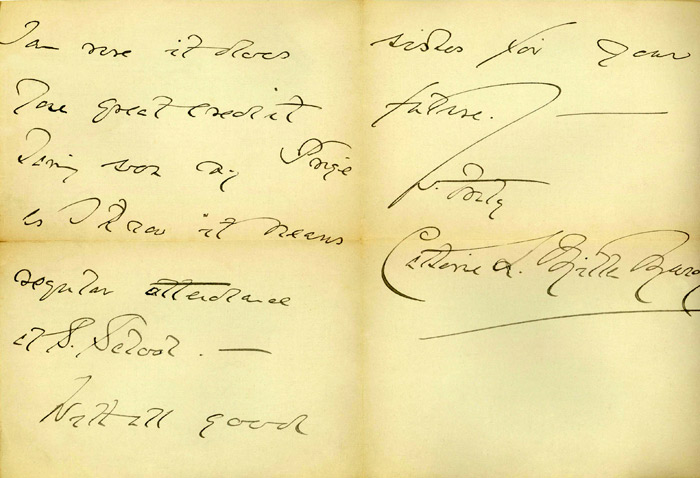 I am sure it does
You great credit
Having won my Prize
as I know it means
regular attendance
at S. School. —
With all good
wishes for your
future. —
Yrs. truly
Catherine L.